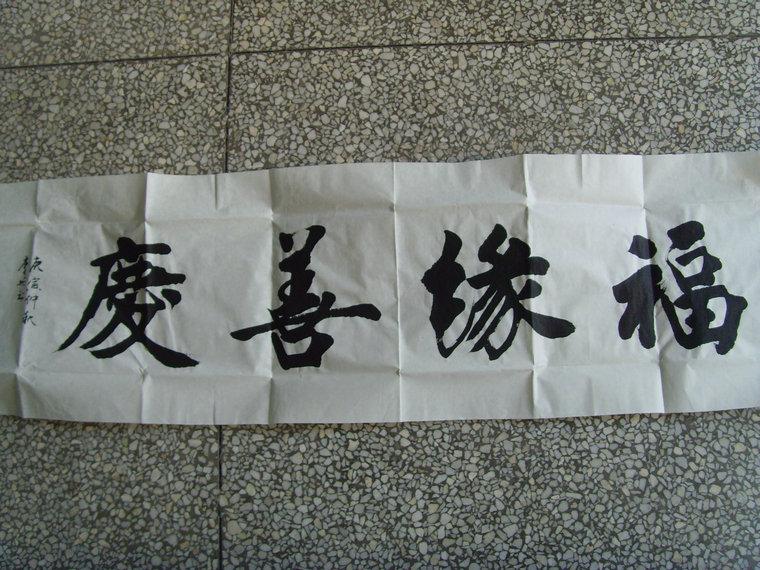 福缘善慶
庚寅仲秋